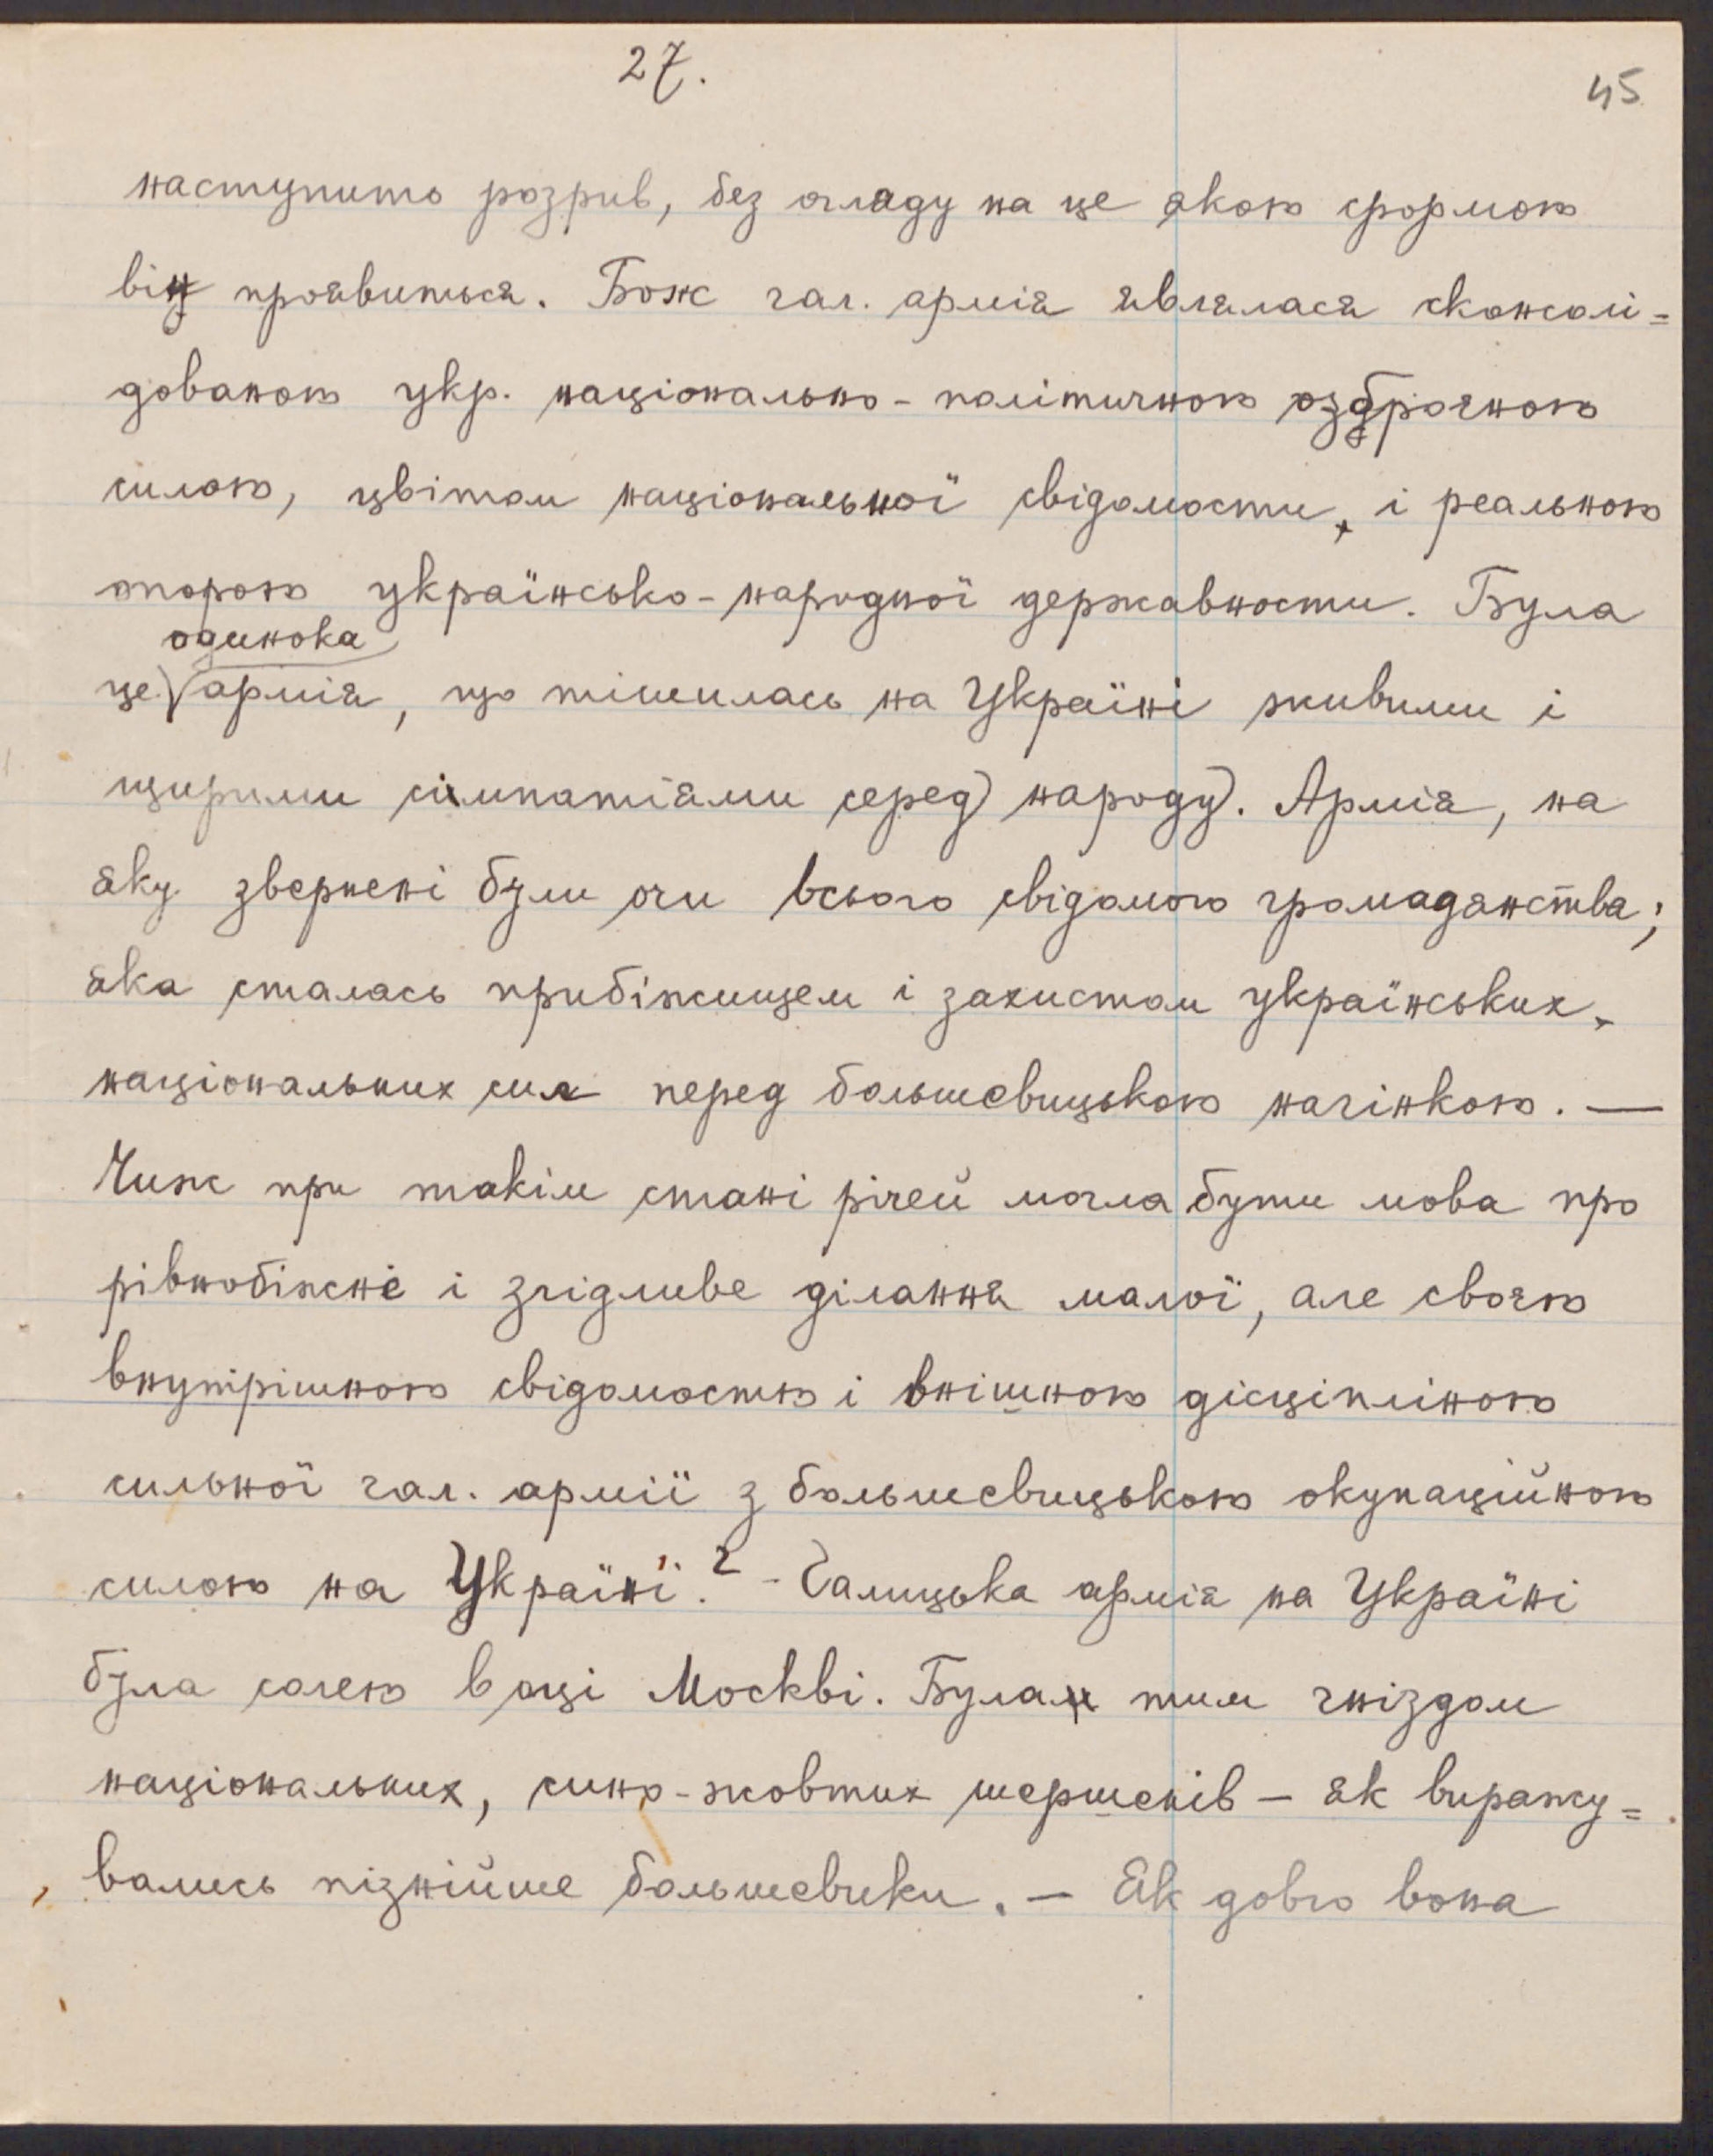 27.
45
наступить розрив, без огляду на це якою формою
він проявиться. Бож гал. армія являлася сконсолі=
дованою укр. національно-політичною озброєною
силою, цвітом національної свідомости, і реальною
опорою українсько-народної державности. Була
одинока
це армія, що тішилась на Україні живими і
щирими сімпатіями серед народу. Армія, на
яку звернені були очи всього свідомого громадянства;
яка сталась прибіжищем і захистом українських,
національних сил перед большевицькою нагінкою. —
Чиж при такім стані річей могла бути мова про
рівнобіжне і згідливе ділання малої, але своєю
внутрішною свідомостю і внішною дісціпліною
сильної гал. армії з большевицькою окупаційною
силою на Україні? - Галицька армія на Україні
була солею в оці Москві. Була тим гніздом
національних, сино-жовтих шершенів — як виражу=
вались пізнійше большевики. — Як довго вона